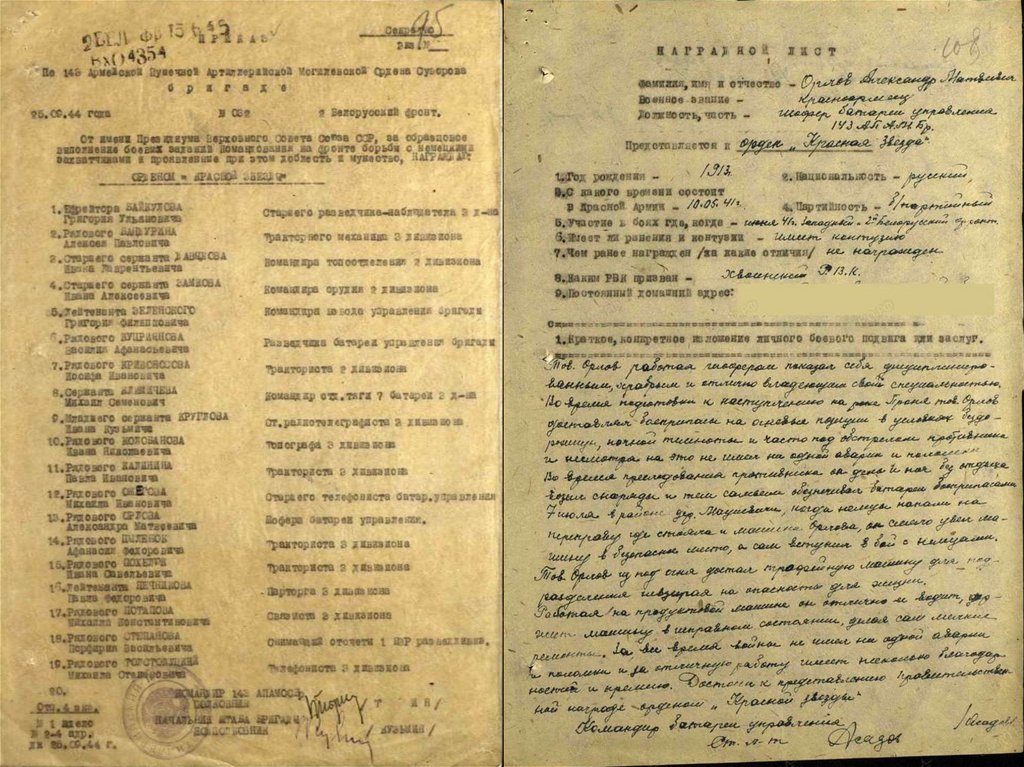 2БЕЛ ФР 15 6 45
ВХО4354
95
Секретно
экз №
П Р И К А З
По 143 Армейской Пушечной Артиллерийской Могилевской Ордена Суворова
б р и г а д е
25.09.44 года № 032 2 Белорусский фронт.
От имени Президиума Верховного Совета Союза ССР, за образцовое
выполнение боевых заданий Командования на фронте борьбы с немецкими
захватчиками и проявленные при этом доблесть и мужество, НАГРАЖДАЮ:
ОРДЕНОМ "КРАСНОЙ ЗВЕЗДЫ"
1. Ефрейтора БАЙКУЛОВА Старшего разведчика-наблюдателя 3 д-на
Григория Ульяновича
2. Рядового Тракторного механика 3 дивизиона
Алексея Павловича
3. Старшего сержанта Командира топоотделения 2 дивизиона
Ивана Лаврентьевича
4. Старшего сержанта ЗАМКОВА Командира орудия 2 дивизиона
Ивана Алексеевича
5. Лейтенанта ЗЕЛЕНСКОГО Командира взвода управления бригады
Григория Филипповича
6. Рядового КУПРИЯНОВА Разведчика батареи управления бригады
Василия Афанасьевича
7. Рядового КРИВОНОСОВА Тракториста 2 дивизиона
Иосифа Ивановича
8. Сержанта Командир отд.тяги 7 батареи 3 д-на
Михаил Семенович
9. Младшего сержанта КРУГЛОВА Ст.радиотелеграфиста 3 дивизиона
Ивана Кузьмича
10. Рядового КОЛОБАНОВА Топографа 3 дивизиона
Ивана Николаевича
11. Рядового КАЛИНИНА Тракториста 3 дивизиона
Павла Ивановича
12. Рядового Старшего телефониста батар.управления
Михаила Ивановича
13. Рядового ОРЛОВА Шофера батареи управления.
Александра Матвеевича
14. Рядового ПИЛЕНОК Тракториста 3 дивизиона
Афанасия Федоровича
15. Рядового Тракториста 3 дивизиона
Ивана Савельевича
16. Лейтенанта ПЕЧНИКОВА Парторга 3 дивизиона
Павла Федоровича
17. Рядового ПОТАПОВА Связиста 2 дивизиона
Михаила Константиновича
18. Рядового СТЕПАНОВА Снимающий отсчеты 1
Порфирия Васильевича
19. Рядового Телефониста 3 дивизиона
Михаила
20.
КОМАНДИР 143 АПАМОСБ
ПОЛКОВНИК
Отп. 4 экз.
№ 1 вдело
№ 2-4 адр.
ди 25.09.44 г.
НАЧАЛЬНИК ШТАБА БРИГАДЫ
ПОДПОЛКОВНИК КУЗЬМИН/
108
Н А Г Р А Д Н О Й Л И С Т
Фамилия, имя и отчество - Орлов Александр Матвеевич
Военное звание - Красноармеец
Должность, часть - шофер батареи управления
143 АПАМБр.
Представляется к орден "Красная Звезда"
1. Год рождения - 1913 2. Национальность - русский
3. С какого времени состоит
в Красной Армии - 10.05.41г. 4. Партийность - б/партийный
5. Участие в боях где, когда - июня 41г. Западный - 2й Белорусский фронт
6. Имеет ли ранения и контузии - имеет контузию
7. Чем ранее награжден /за какие отличия/ не награжден
8. Каким РВК призван - Хвалынский РВ.К.
9. Постоянный домашний адрес:
1. Краткое, конкретное изложение личного боевого подвига или заслуг.
Тов. Орлов работая шофером показал себя дисциплиниро-
ванным, храбрым и отлично владеющим своей специальностью.
Во время подготовки к наступлению на реке Проня тов. Орлов
доставлял боеприпасы на огневые позиции в условиях бездо-
рожицы, ночной темноты и часто под обстрелом противника
и несмотря на это не имел ни одной аварии и поломки
Во время преследования противника он день и ноч без отдыха
возил снаряды и тем самым обеспечивал батареи боеприпасами
7 июля в районе дер. Мацкевичи, когда немцы напали на
переправу где стояла и машина Орлова, он смело увел ма-
шину в безопасное место, а сам вступил в бой с немцами.
Тов. Орлов из под огня достал трофейную машину для под-
разделения невзирая на опасности для жизни.
Работая на продуктовой машине он отлично и водит, дер-
жит машину в исправном состоянии, делая сам мелкие
ремонты. За все время войны не имел ни одной аварии
и поломки и за отличную работу имеет несколько благодар-
ностей и премию. Достоин к представлению правительствен-
ной награде - орденом "Красной звезды"
Командир батареи управления
Ст. л-т Асадов /Асадов